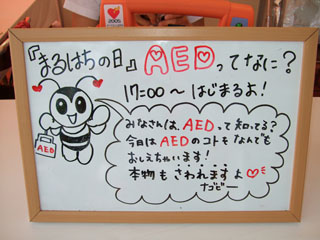 2005
『まるはちの日』AEDってなに?
17:00〜はじまるよ!
みなさんは、AEDって知ってる?
今日はAEDのコトもなんでも
おしえちゃいます!
本物もさわれますよ
ナゴビー
AED